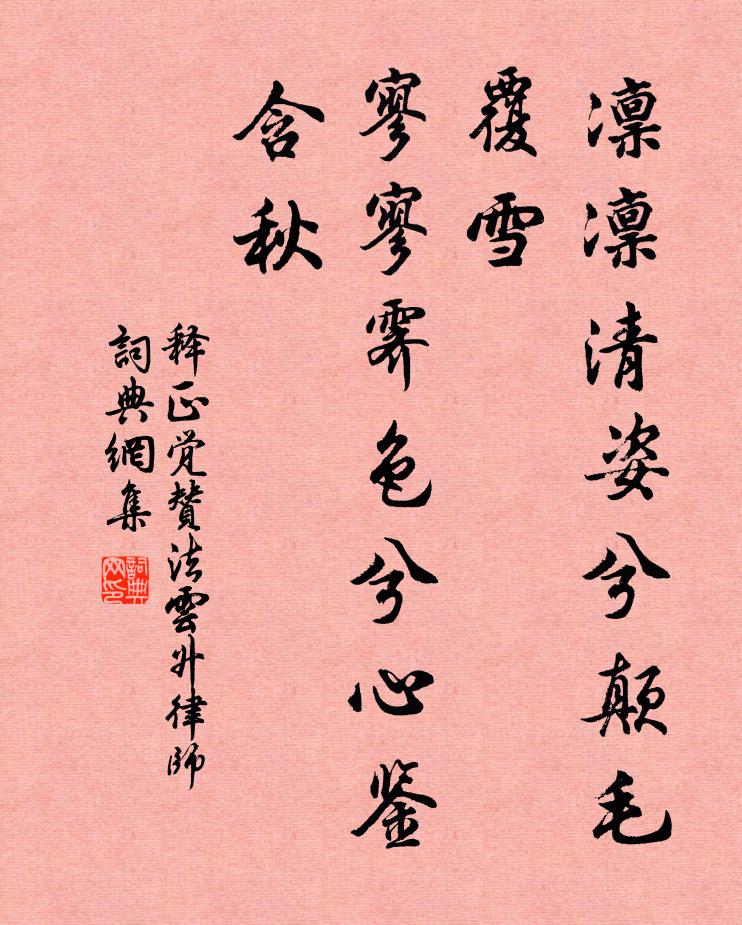 凛凛清姿兮颠毛
覆雪
寥寥霁色兮心鉴
含秋
释正觉贊法雲升律師
詞典網集
詞典网印